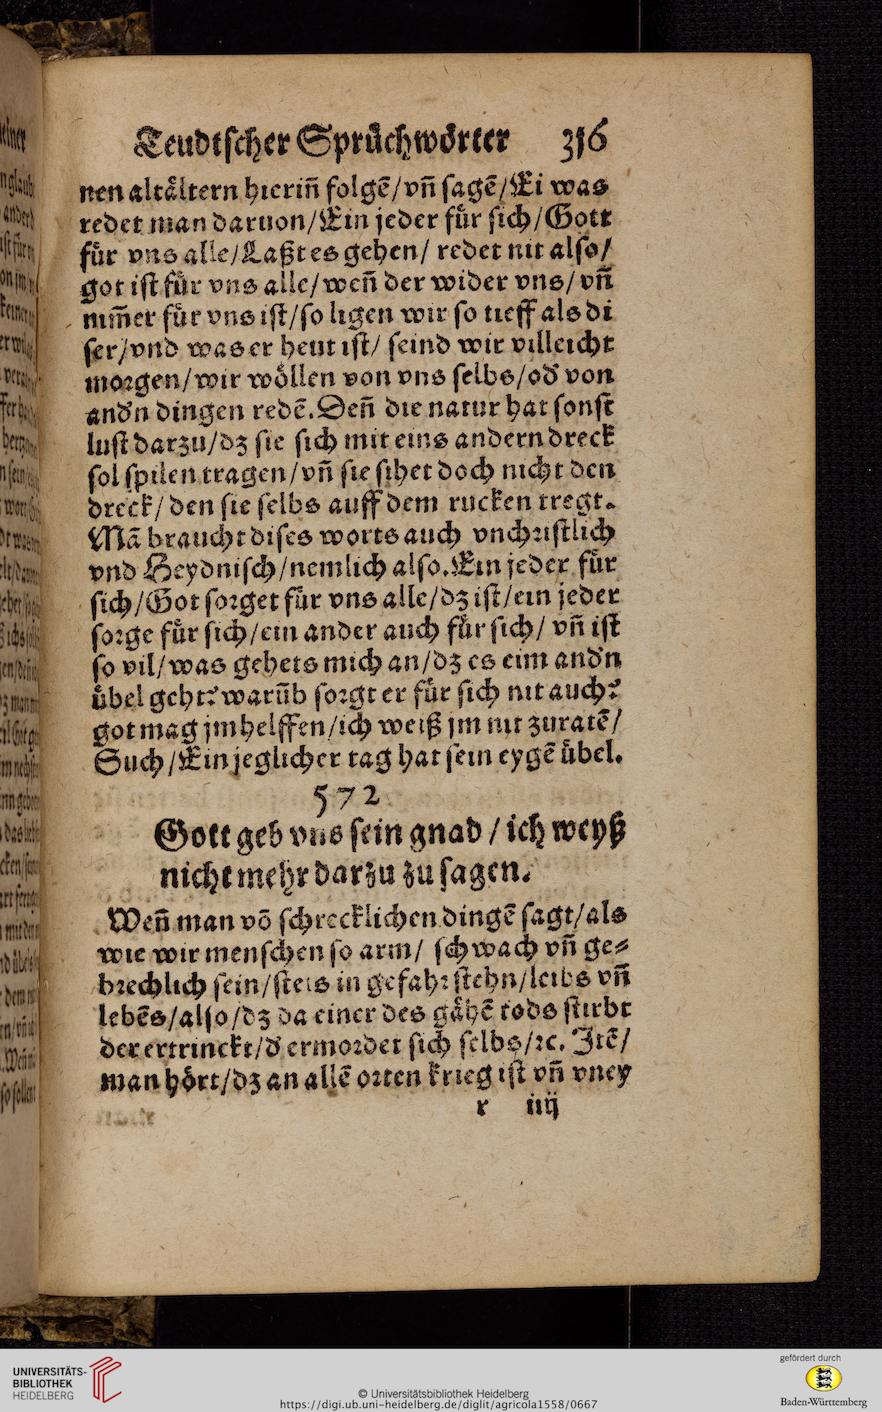 Teudtscher Sprüchwörter 316
nen altåltern hieriñ folgẽ/vñ sagẽ/Ei was
redet man daruon/Ein jeder für sich/Gott
für vns alle/Laßt es gehen/ redet nit also/
got ist für vns alle/weñ der wider vns/vñ
nim̃er für vns ist/so ligen wir so tieff als di
ser/vnd was er heut ist/ seind wir villeicht
morgen/wir wöllen von vns selbs/od̕ von
and̕n dingen redẽ. Deñ die natur hat sonst
lust darzu/dz sie sich mit eins andern dreck
sol spilen tragen/vñ sie sihet doch nicht den
dreck/den sie selbs auff dem rucken tregt.
Mã braucht dises worts auch vnchristlich
vnd Heydnisch/nemlich also. Ein jeder für
sich/Got sorget für vns alle/dz ist/ein jeder
sorge für sich/ein ander auch für sich/ vñ ist
so vil/was gehets mich an/dz es eim and̕n
übel geht? warũb sorgt er für sich nit auch?
got mag jm helffen/ich weiß jm nit zuratẽ/
Such/Ein jeglicher tag hat sein eygẽ übel.
572
Gott geb vns sein gnad / ich weyß
nicht mehr darzu zu sagen.
Weñ man võ schrecklichen dingẽ sagt/als
wie wir menschen so arm/ schwach vñ ge⸗
brechlich sein/stets in gefahr stehn/leibs vñ
lebẽs/also/dz da einer des gåhẽ tods stirbt
der ertrinckt/d̕ ermordet sich selbs/ꝛc. Itẽ/
man hört/dz an allẽ orten krieg ist vñ vney
r iiij
UNIVERSITÄTS-
BIBLIOTHEK
HEIDELBERG
© Universitätsbibliothek Heidelberg
https://digi.ub.uni-heidelberg.de/diglit/agricola1558/0667
gefördert durch
Baden-Württemberg